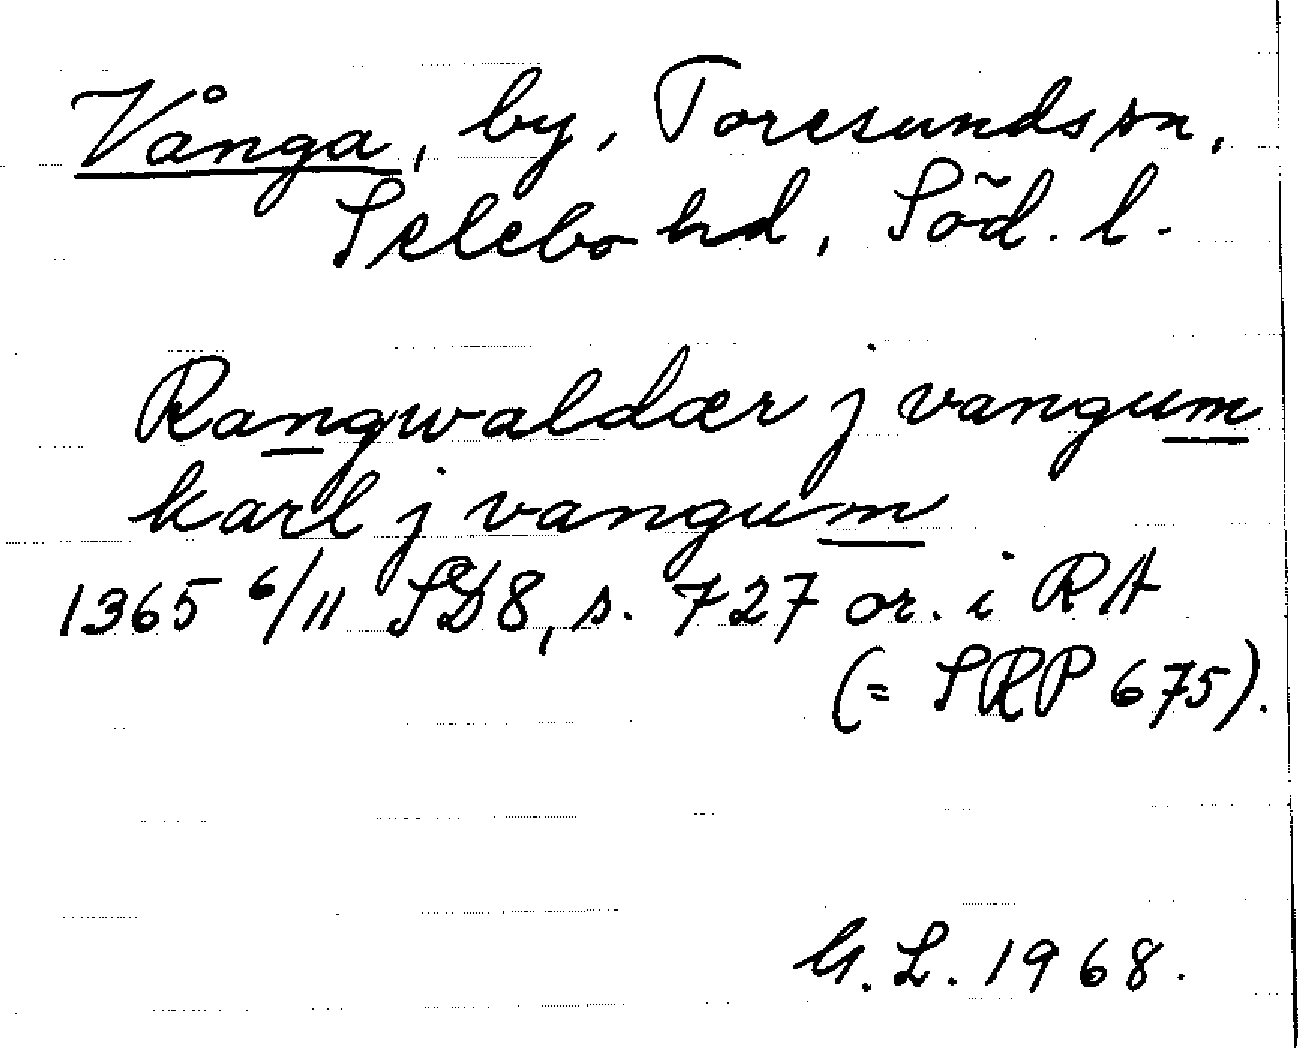 Vånga, by, Toresunds sn,
Selebo hd, Söd. l.
Rangwaldær j vangum
karl j vangum
1365 6/11 SD8, s. 727 or. i RA
(= SRP 675).
G. L. 1968.